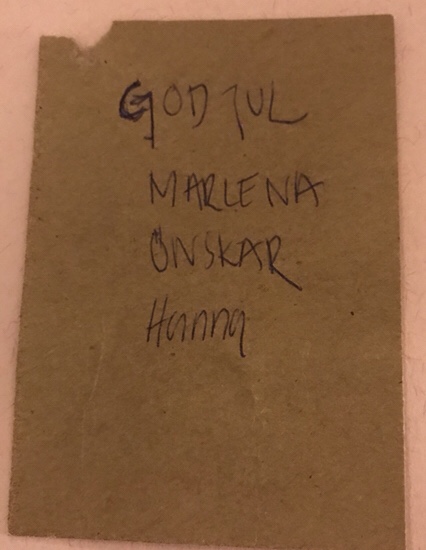 GOD JUL
MARLENA
ÖNSKAR
Hanna